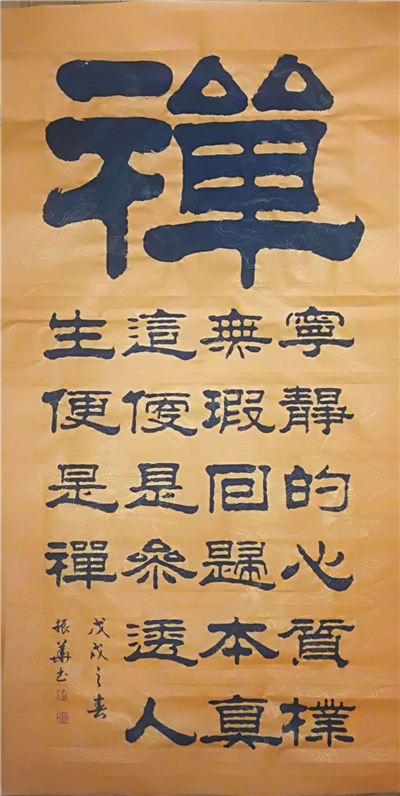 禪
寧靜的心質樸
無瑕回歸本真
這便是參透人
生便是禪
戊戌之春
振華书